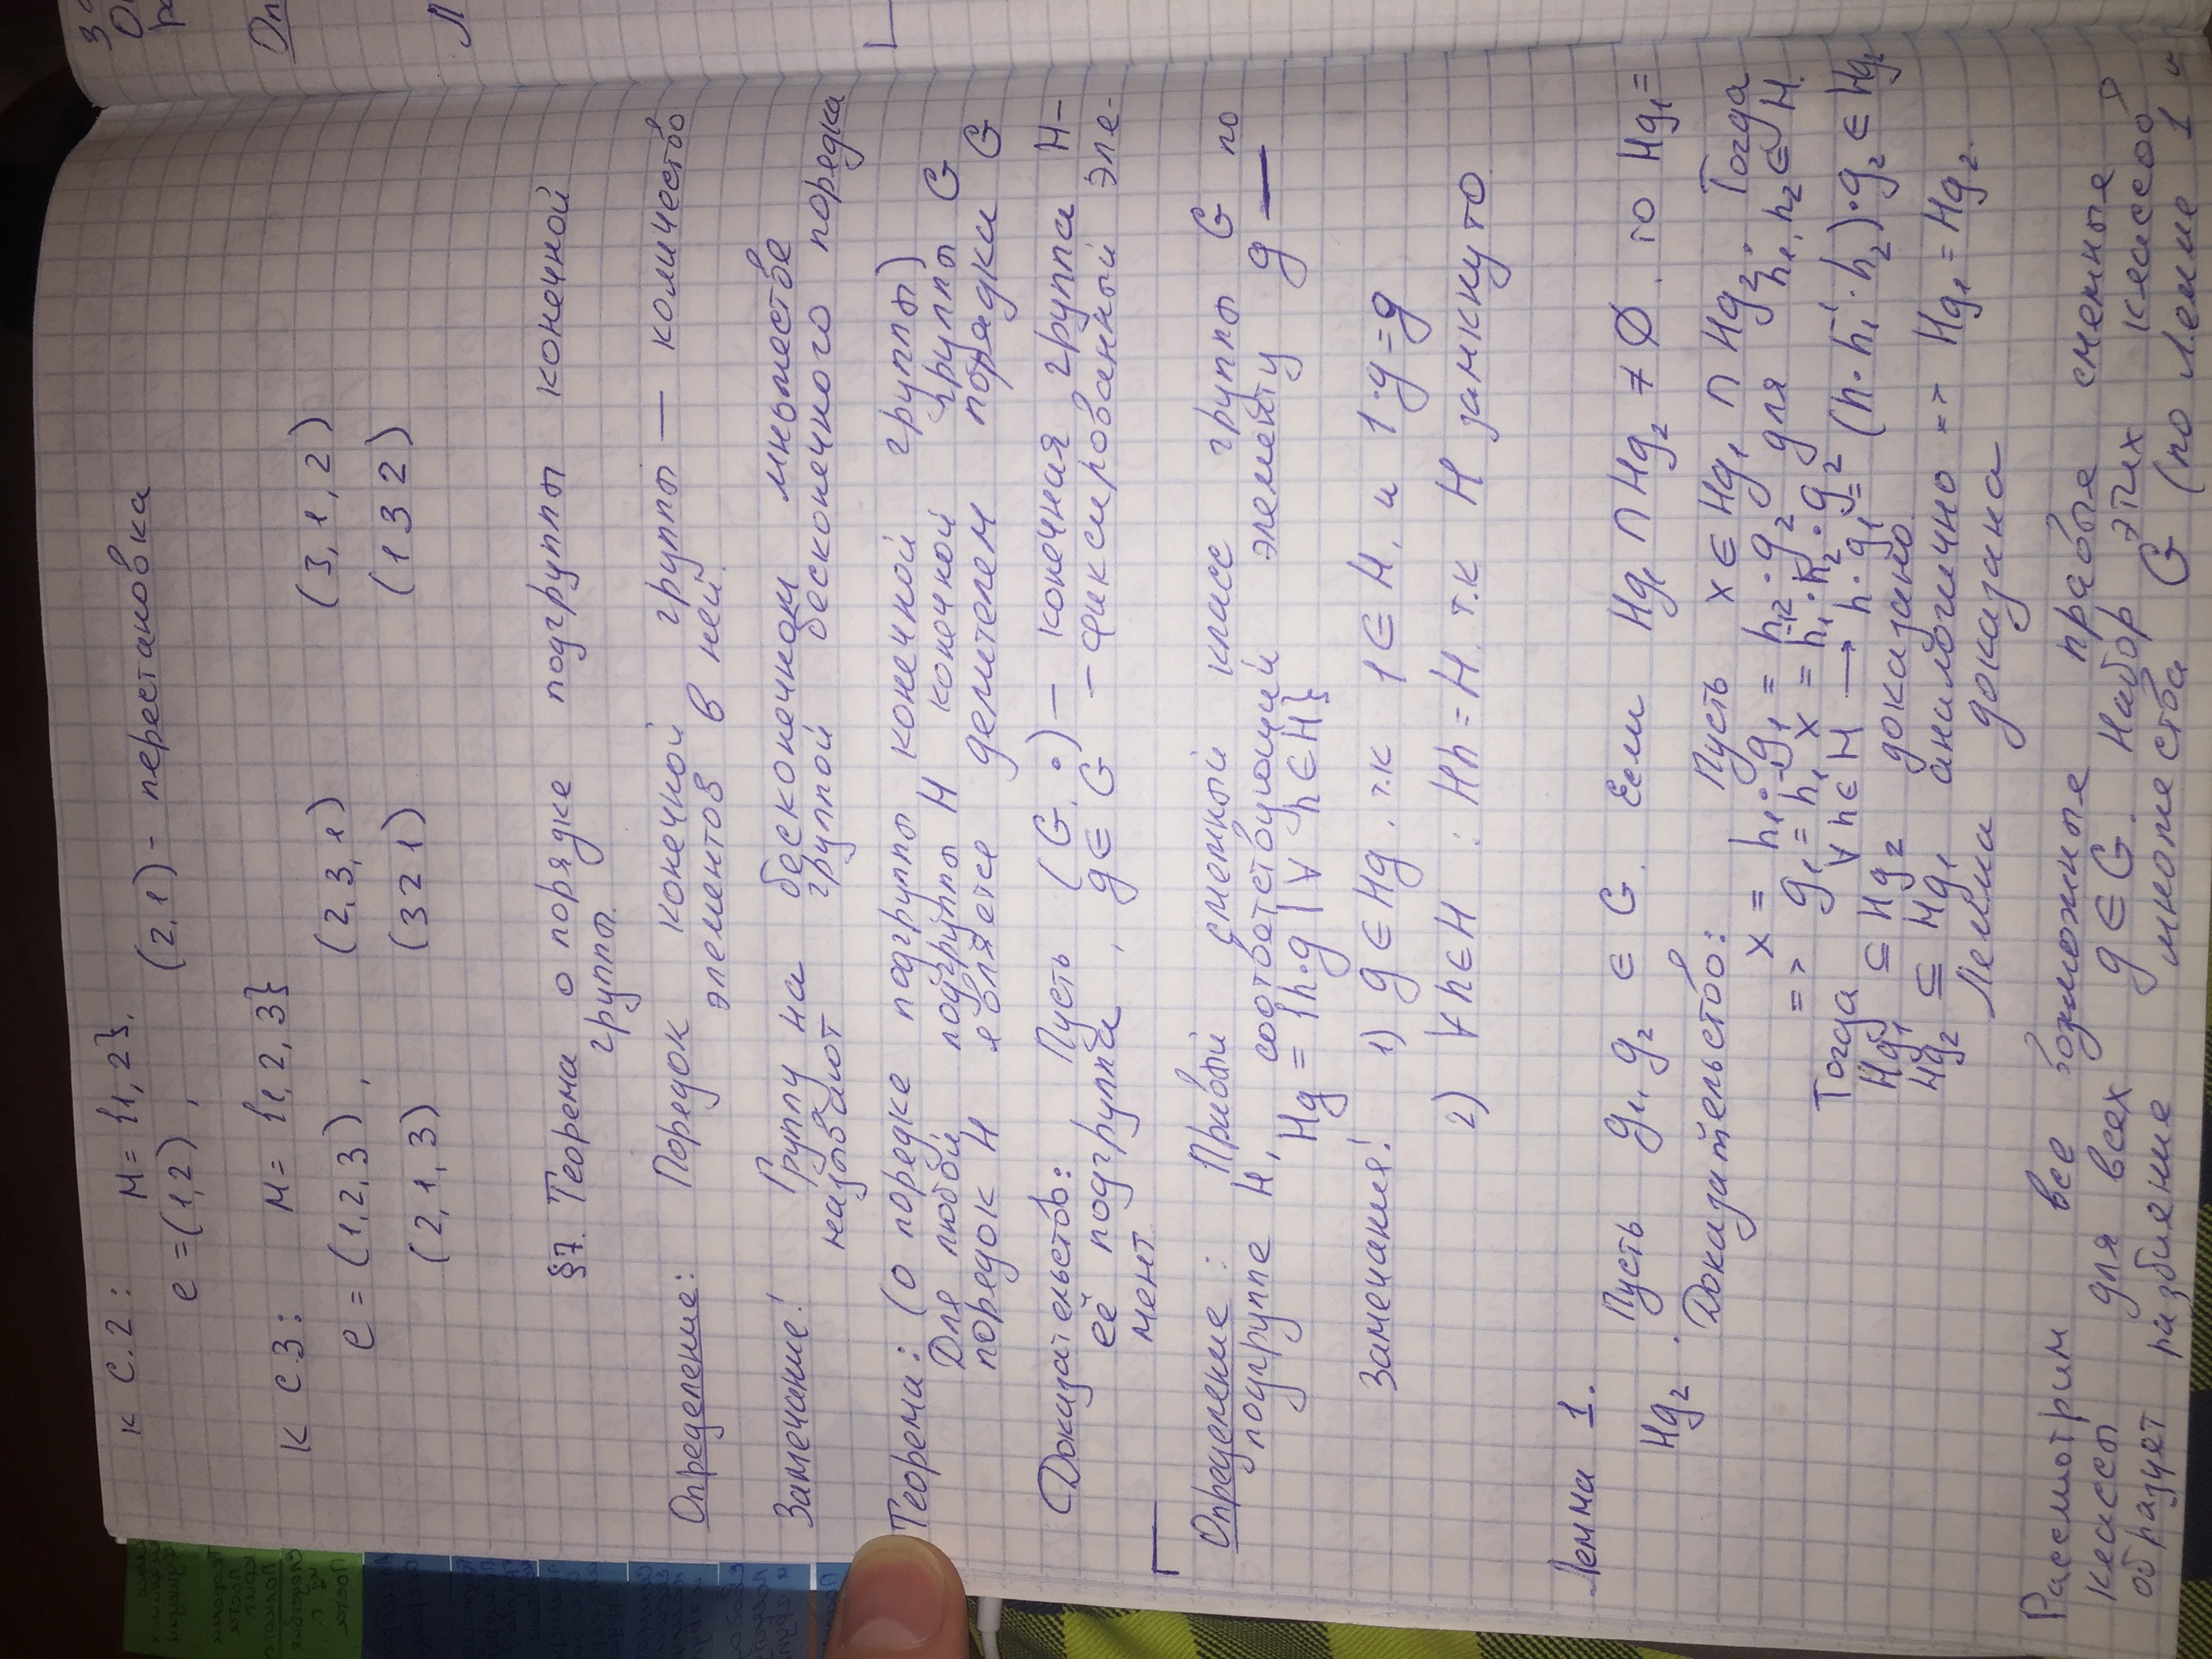 к С.2: М = {1, 2}.
e = (1,2) , (2,1) - перестановка
к С.3: М = {1, 2, 3}
e = (1,2,3) , (2,3,1) (3,1,2)
(2,1,3) (3 2 1) (1 3 2)
§7. Теорема о порядке подгруппы конечной
группы.
Определение: Порядок конечной группы — количество
элементов в ней.
Замечание! Группу на бесконечном множестве
называют группой бесконечного порядка
Теорема: (о порядке подгруппы конечной группы)
Для любой подгруппы H конечной группы G
порядок H является делителем порядка G
Доказательство: Пусть (G, •) — конечная группа H —
её подгруппа, g ∈ G — фиксированный эле-
мент
Определение: Правый смежный класс группы G по
подгруппе H, соответствующий элементу g —
Hg = {h·g | ∀ h ∈ H}
Замечания! 1) g ∈ Hg, т.к 1 ∈ H, и 1·g = g
2) ∀ h ∈ H : Hh = H. т.к H замкнуто
Лемма 1.
Пусть g₁, g₂ ∈ G. Если Hg₁ ∩ Hg₂ ≠ ∅, то Hg₁ =
Hg₂.
Доказательство: Пусть x ∈ Hg₁ ∩ Hg₂. Тогда
x = h₁·g₁ = h₂·g₂ для h₁, h₂ ∈ H.
=> g₁ = h₁⁻¹ x = h₁⁻¹·h₂·g₂
Тогда ∀ h ∈ H → h·g₁ = (h·h₁⁻¹·h₂)·g₂ ∈ Hg₂
Hg₁ ⊆ Hg₂ доказано.
Hg₂ ⊆ Hg₁ аналогично => Hg₁ = Hg₂.
Лемма доказана
Рассмотрим все возможные правые смежные
классы для всех g ∈ G. Набор этих классов
образует разбиение множества G (по Лемме 1 и